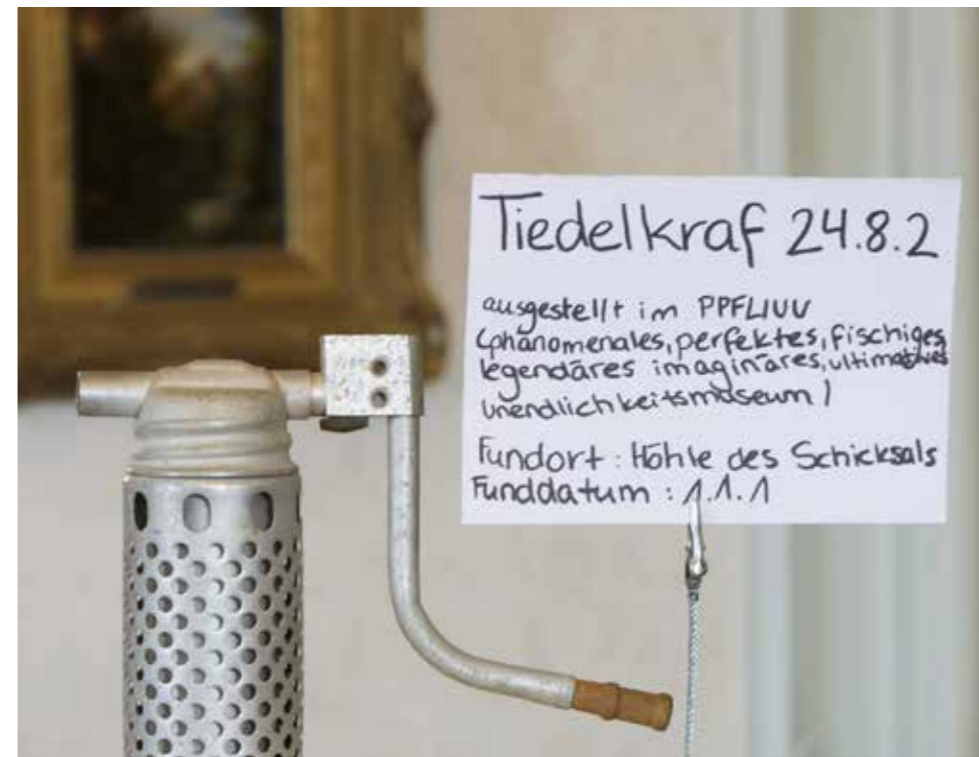 Tiedelkraf 24.8.2
ausgestellt im PPFLIUU
(phänomenales, perfektes, fischiges,
legendäres imaginäres, ultimatives
unendlichkeitsmuseum)
Fundort: Höhle des Schicksals
Funddatum: 1.1.1